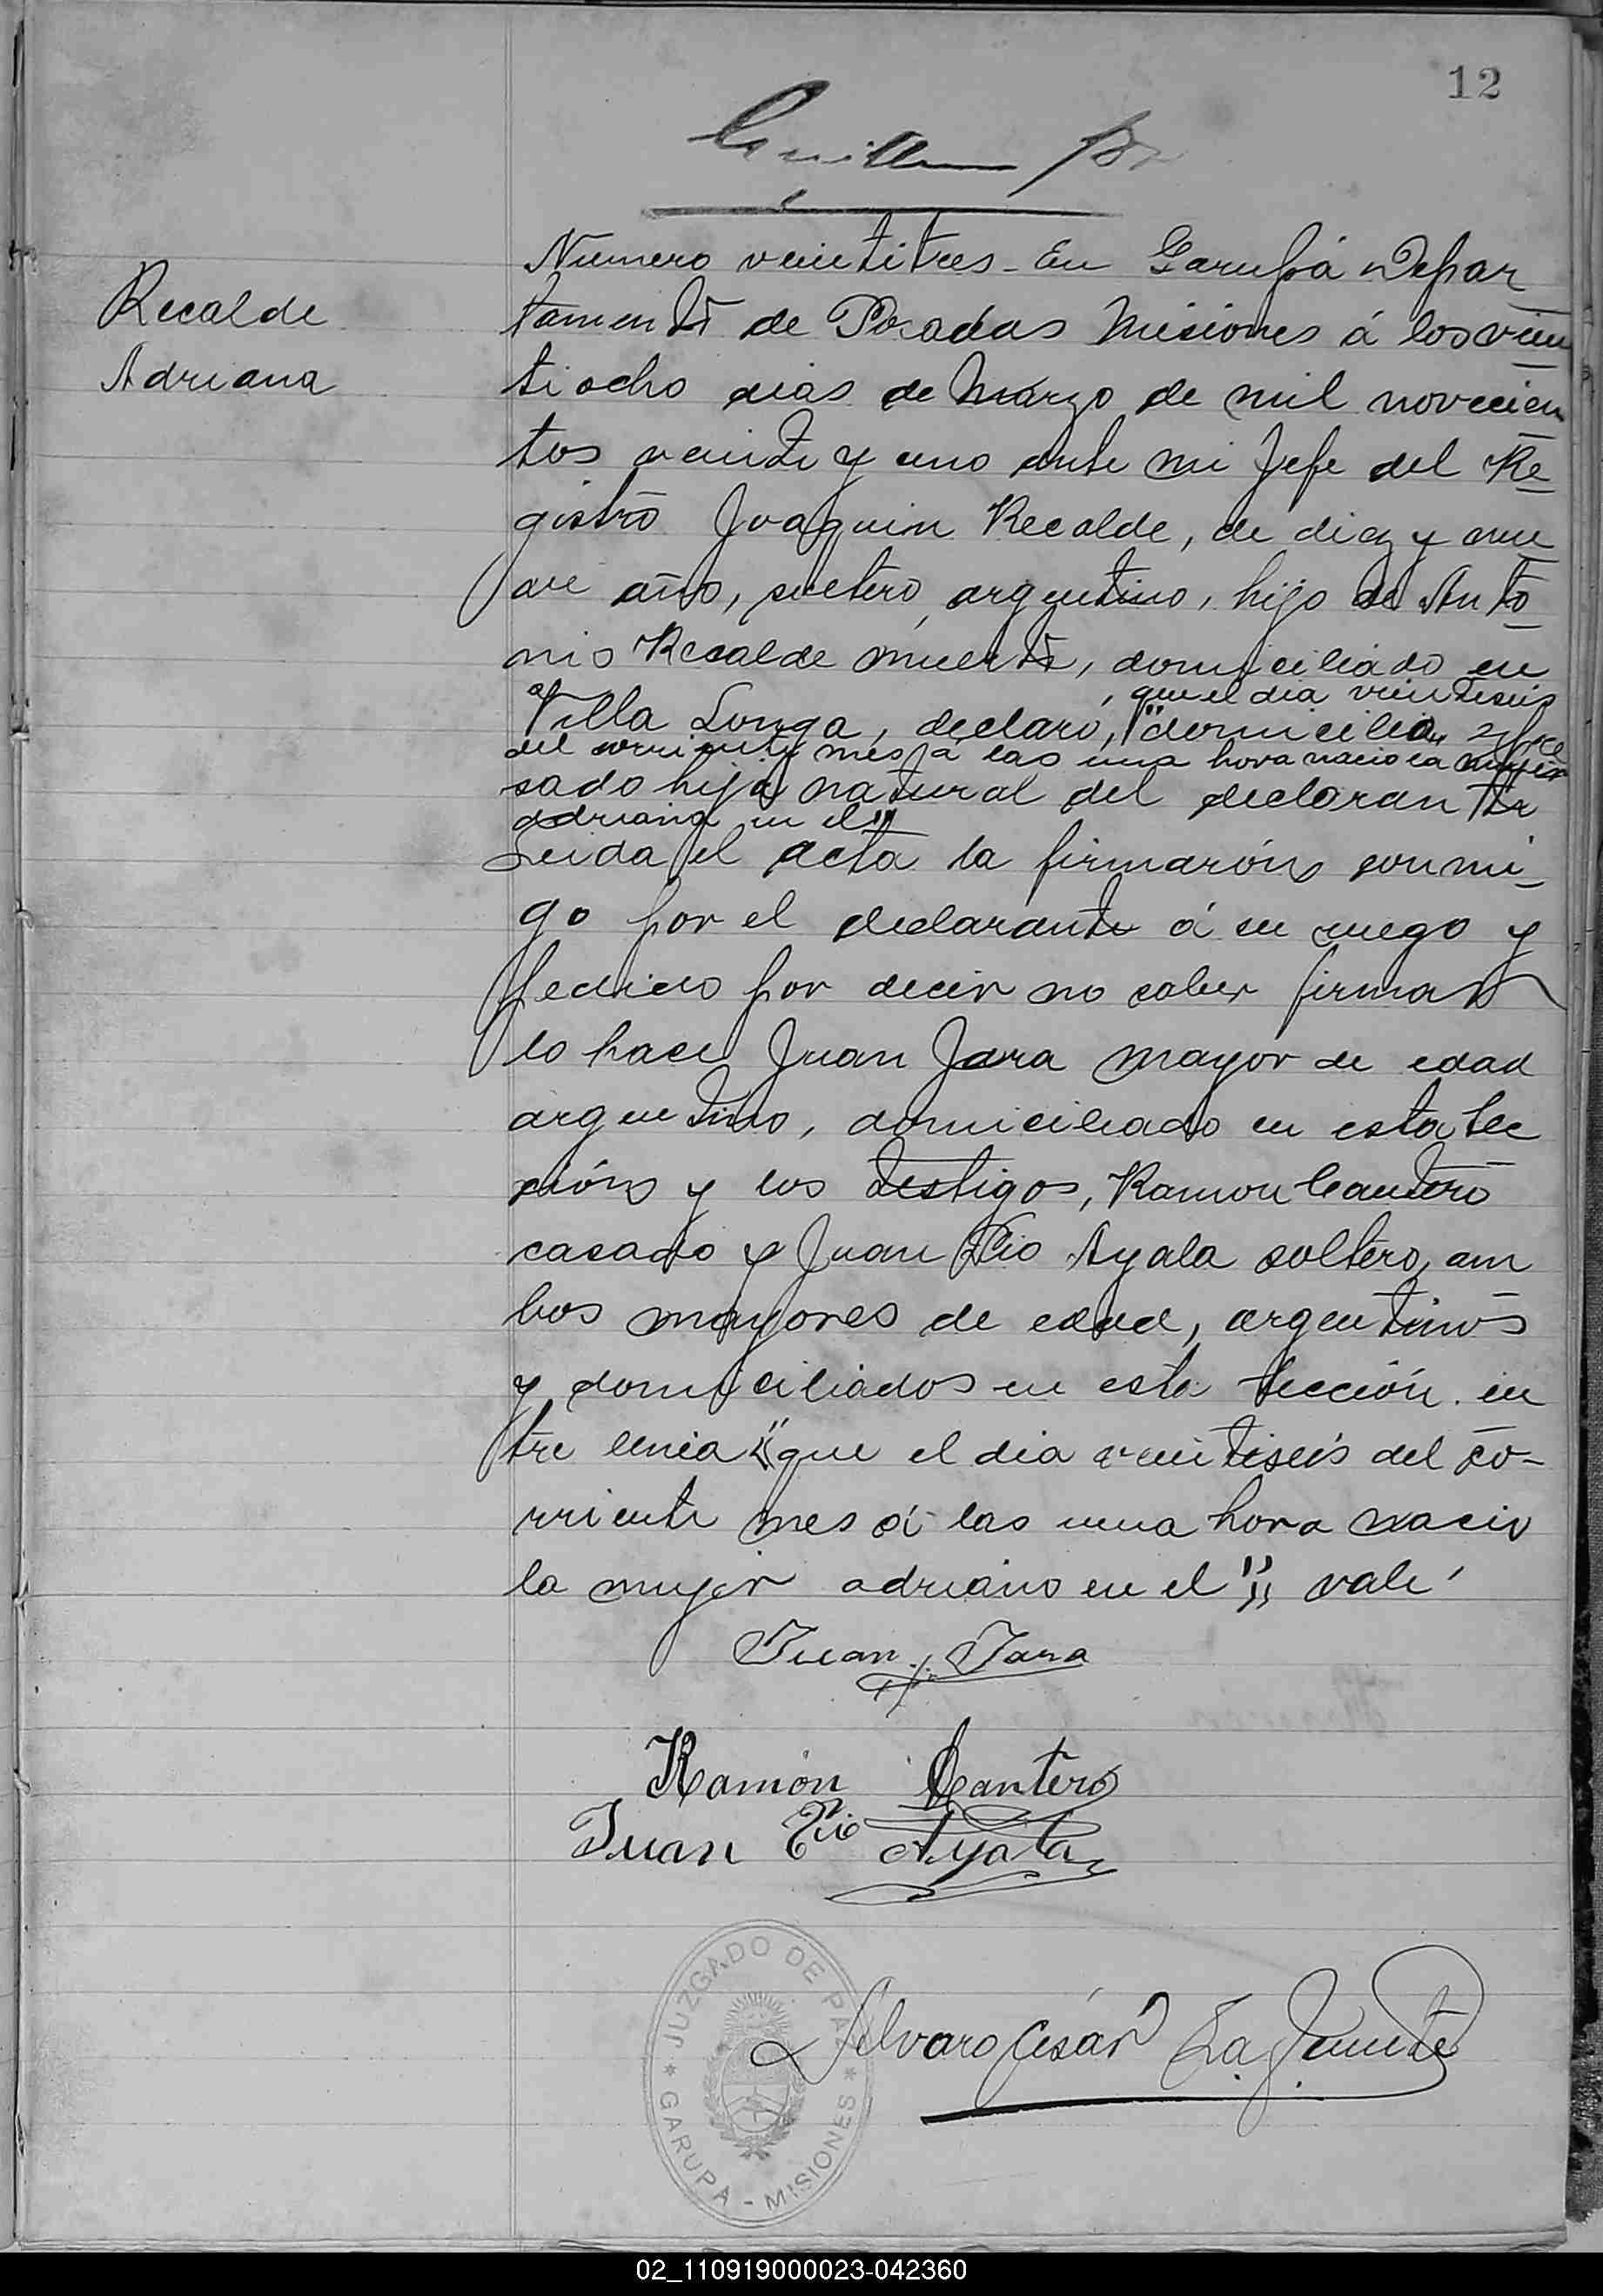 12
Recalde
Adriana
Numero veintitres - En Garupá Depar
tamento de Posadas Misiones á los vein
tiocho dias de Marzo de mil novecien
tos veinte y uno ante mi Jefe del Re
gistro Joaquin Recalde, de diez y nue
ve año, soltero, argentino, hijo de Anto
nio Recalde muerto, domiciliado en
, que el dia veintiseis
Villa Longa, declaró, " domicilio expre
del corriente mes á las una hora nacio la mujer
sado hija natural del declarante
adriana en el "
Leida el acta la firmarón conmi
go por el declarante á su ruego y
pedido por decir no saber firmar
lo hace Juan Jara mayor de edad
argentino, domiciliado en esta sec
ción y los testigos, Ramon Cantero
casado y Juan Pio Ayala soltero, am
bos mayores de edad, argentinos
y domiciliados en esta sección. en
tre linea " que el dia veintiseis del co-
rriente mes á las una hora nacio
la mujer adriano en el " vale
Juan Jara
Ramón Cantero
Juan Pio Ayala
JUZGADO DE PAZ
GARUPA - MISIONES
Alvaro César La Fuente
02_110919000023-042360